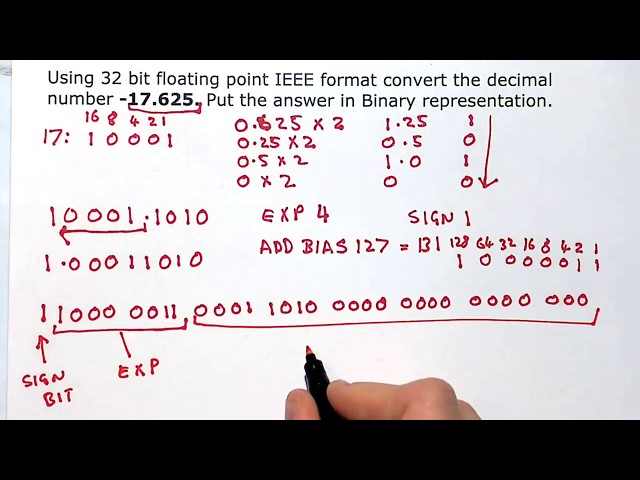 Using 32 bit floating point IEEE format convert the decimal
number -17.625. Put the answer in Binary representation.
16 8 4 2 1
17: 1 0 0 0 1
0.625 x 2 1.25 1
0.25 x 2 0.5 0
0.5 x 2 1.0 1
0 x 2 0 0
10001.1010 EXP 4 SIGN 1
ADD BIAS 127 = 131 128 64 32 16 8 4 2 1
1 0 0 0 0 0 1 1
1.00011010
1 1000 0011 0001 1010 0000 0000 0000 000
SIGN
BIT
EXP